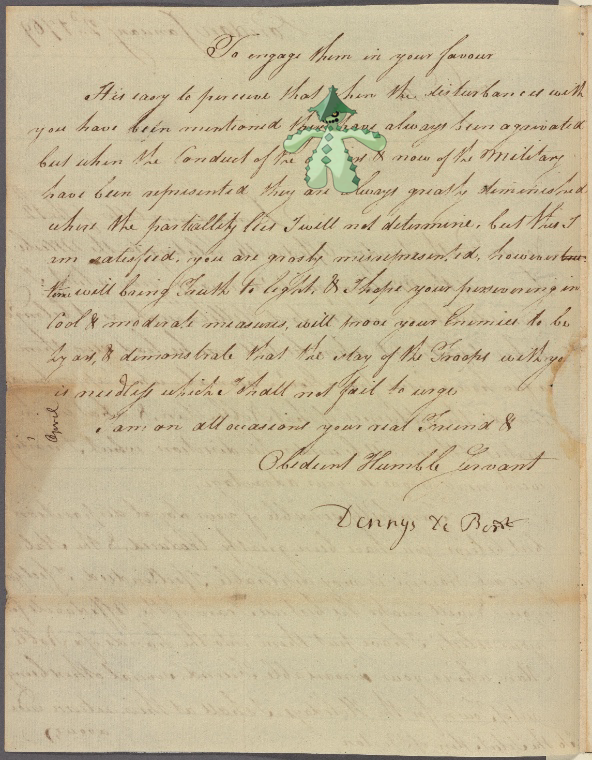 To engage them in your favour
It is easy to perceive that when the disturbances with
you have been mentioned they have always been agrivated
but when the Conduct of the & now of the Military
have been represented they are always greatly diminished
where the partiallity lies I will not determine, but this I
am satisfied, you are grosly misrepresented, however
time will bring Truth to light, & I hope your persevering in
Cool & moderate measures, will prove your Enemies to be
lyars, & demonstrate that the stay of the Troops with you
is needless which I shall not fail to urge
I am on all occasions your real Friend &
Obedient Humble Servant
Dennys De Berdt
April